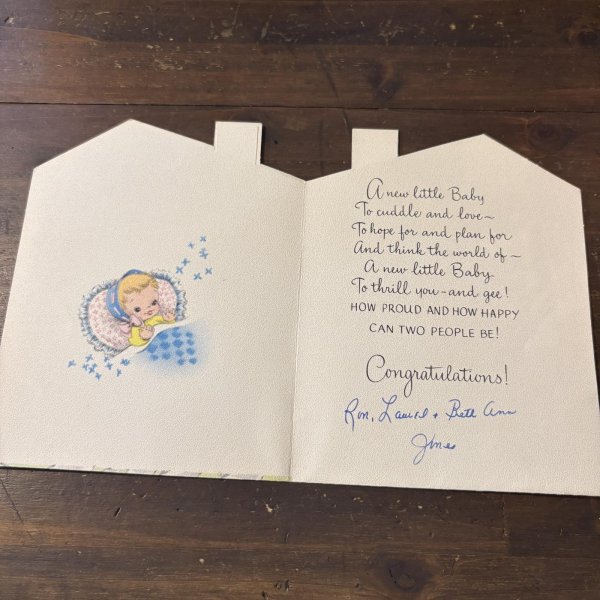 A new little Baby
To cuddle and love~
To hope for and plan for
And think the world of~
A new little Baby
To thrill you-and gee!
HOW PROUD AND HOW HAPPY
CAN TWO PEOPLE BE!
Congratulations!
Ron, + Beth Ann